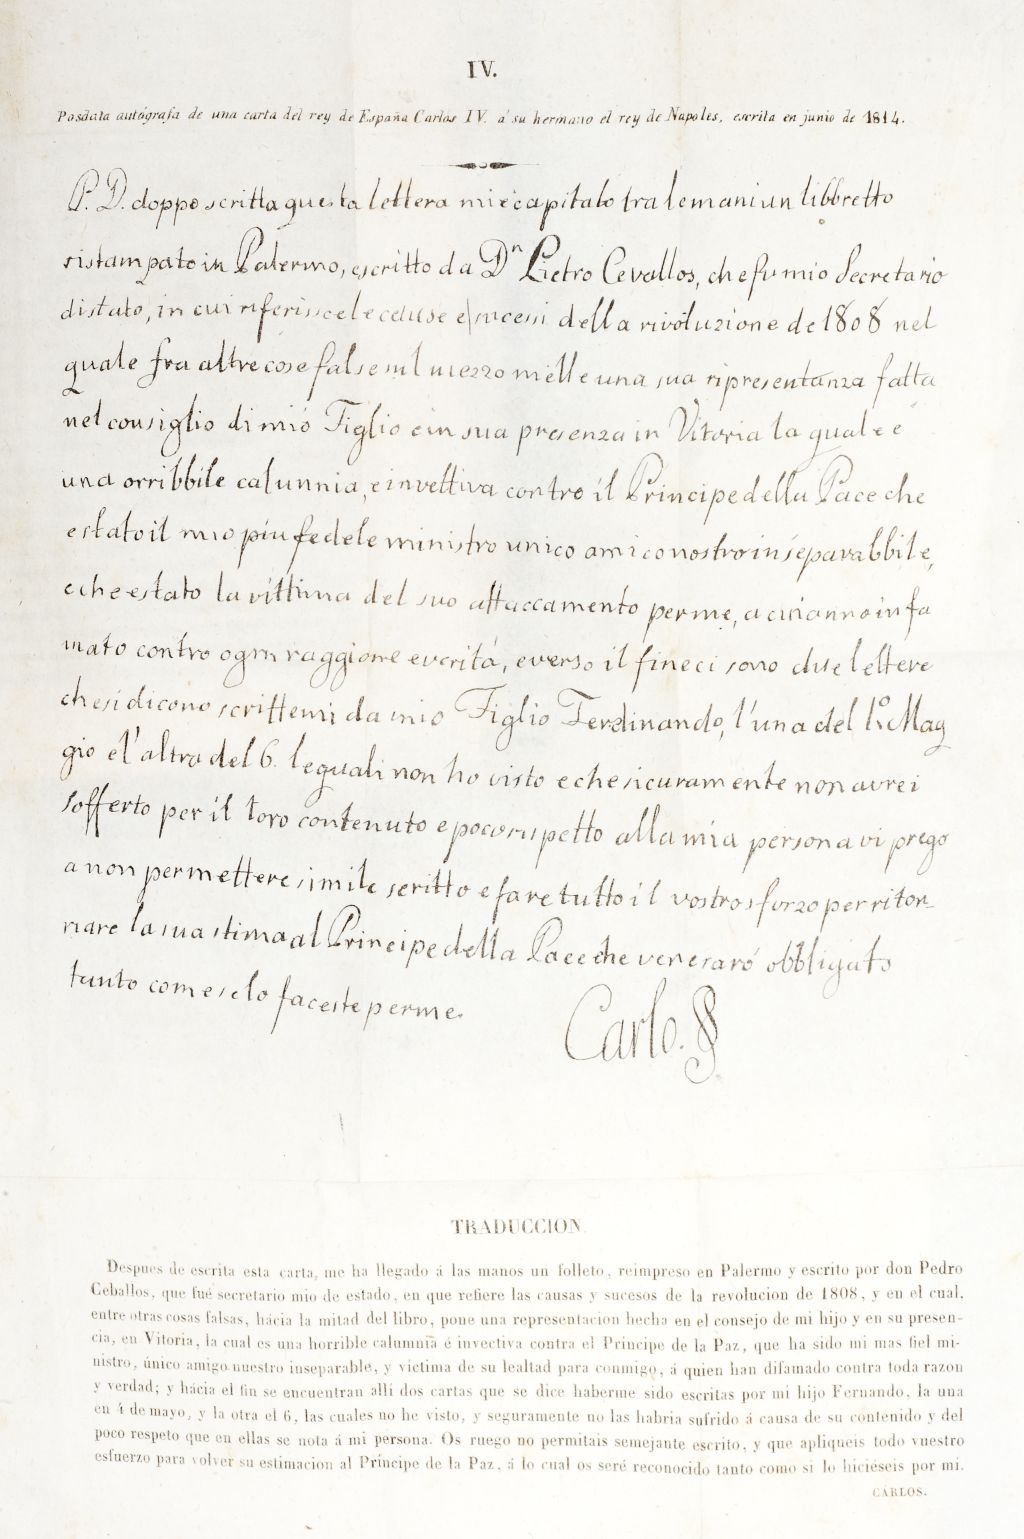 IV.
Posdata autógrafa de una carta del rey de España Carlos IV. á su hermano el rey de Napoles, escrita en junio de 1814.
P. D. doppo scritta questa lettera mi é capitato tra le mani un libbretto
ristampato in Palermo, escritto da Dn Pietro Cevallos, che fu mio Secretario
di stato, in cui riferisce le celuse e sucessi della rivoluzione de 1808 nel
quale fra altre cose false nel mezzo mette una sua ripresentanza fatta
nel consiglio di mio Figlio e in sua presenza in Vitoria la quale é
una orribbile calunnia, e invettiva contro il Principe della Pace che
e stato il mio piu fedele ministro unico amico nostro inseparabbile,
e che e stato la vittima del suo attaccamento per me, a cui anno infa
mato contro ogni raggione e veritá, e verso il fine ci sono due lettere
che si dicono scrittemi da mio Figlio Ferdinando, l'una del 1º. Mag
gio e l'altra del 6. le quali non ho visto e che sicuramente non avrei
sofferto per il loro contenuto e poco rispetto alla mia persona vi prego
a non permettere simile scritto e fare tutto il vostro sforzo per ritor-
nare la sua stima al Principe della Pace che ve ne saró obbligato
tanto come se lo faceste per me.
Carlo.
TRADUCCION
Despues de escrita esta carta, me ha llegado á las manos un folleto, reimpreso en Palermo y escrito por don Pedro
Ceballos, que fué secretario mio de estado, en que refiere las causas y sucesos de la revolucion de 1808, y en el cual,
entre otras cosas falsas, hácia la mitad del libro, pone una representacion hecha en el consejo de mi hijo y en su presen-
cia, en Vitoria, la cual es una horrible calumnia é invectiva contra el Príncipe de la Paz, que ha sido mi mas fiel mi-
nistro, único amigo nuestro inseparable, y victima de su lealtad para conmigo, á quien han difamado contra toda razon
y verdad; y hácia el fin se encuentran alli dos cartas que se dice haberme sido escritas por mi hijo Fernando, la una
en 1 de mayo, y la otra el 6, las cuales no he visto, y seguramente no las habria sufrido á causa de su contenido y del
poco respeto que en ellas se nota á mi persona. Os ruego no permitais semejante escrito, y que apliqueis todo vuestro
esfuerzo para volver su estimacion al Príncipe de la Paz, á lo cual os seré reconocido tanto como si lo hiciéseis por mí.
CÁRLOS.